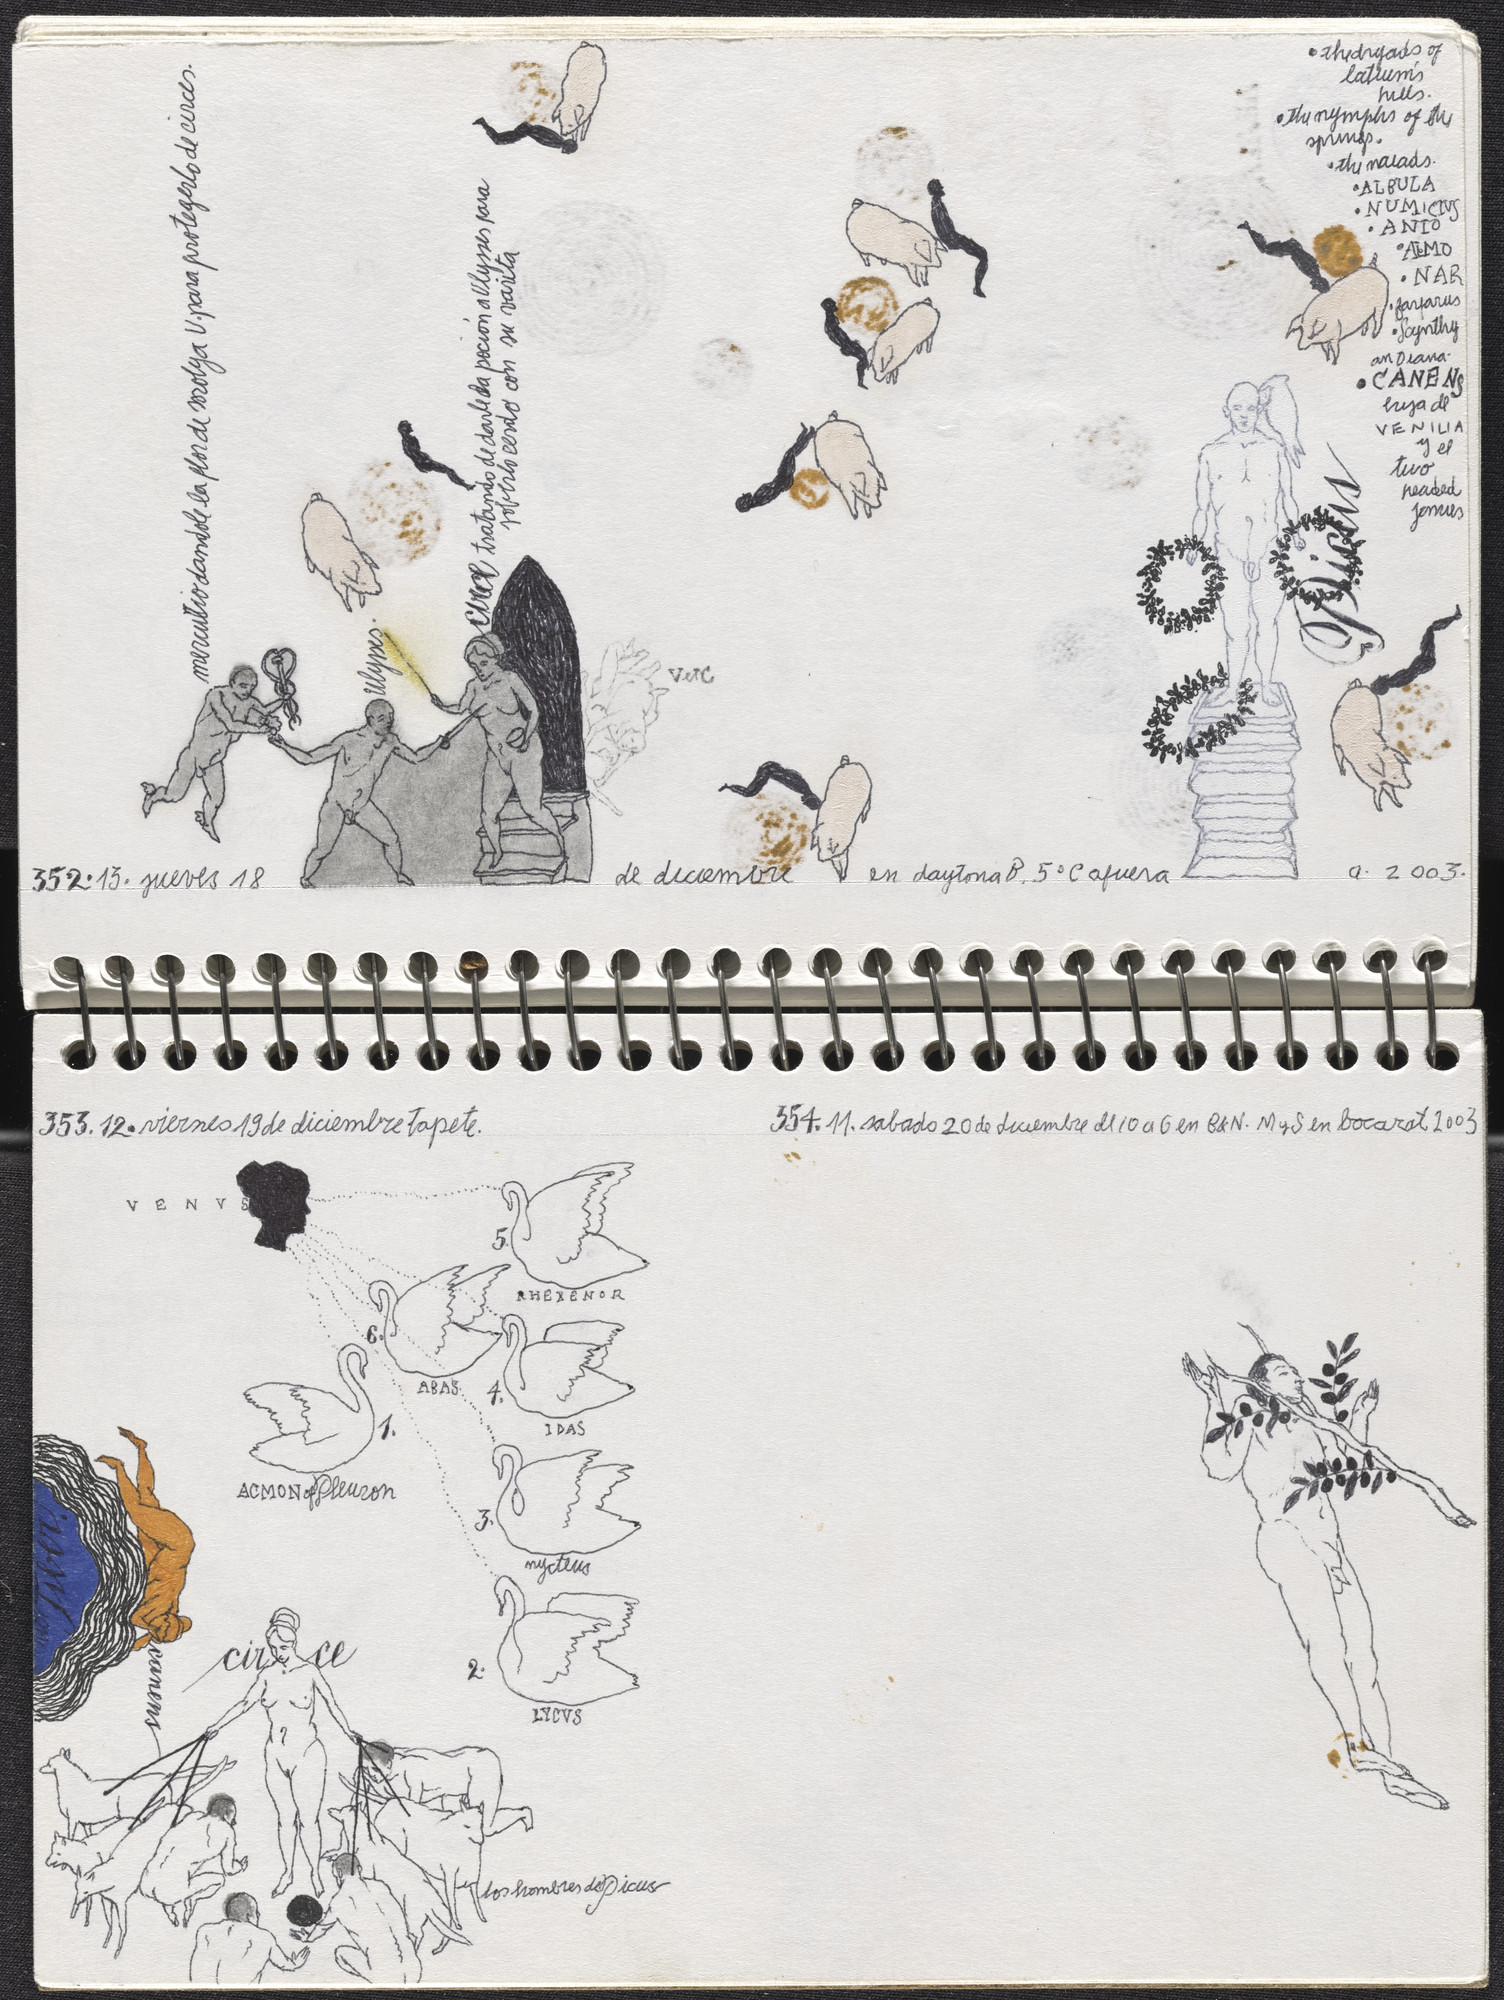 mercurio dandole la flor de moly a U. para protegerlo de circes.
ulyses.
circe tratando de darle la poción a Ulysses para
volverlo cerdo con su varita
• the dryads of
latium's
hills.
• the nymphs of the
springs.
• the naiads.
• ALBULA
• NUMICIUS
• ANIO
• ALMO
• NAR
• farfarus
• Scynthy
an Diana.
• CANENS
hija de
VENILIA
y el
two
headed
Picus
352. 13. jueves 18 de diciembre en daytona B. 5°C afuera a. 2003.
353. 12. viernes 19 de diciembre tapete.
354. 11. sabado 20 de diciembre de 10 a 6 en B&N. M y S en bocarat 2003
VENUS
5.
RHEXENOR
6.
ABAS
4.
IDAS
1.
ACMON of Pleuron
3.
nycteus
2.
LYCUS
Tiber.
canens
circe
los hombres de Picus